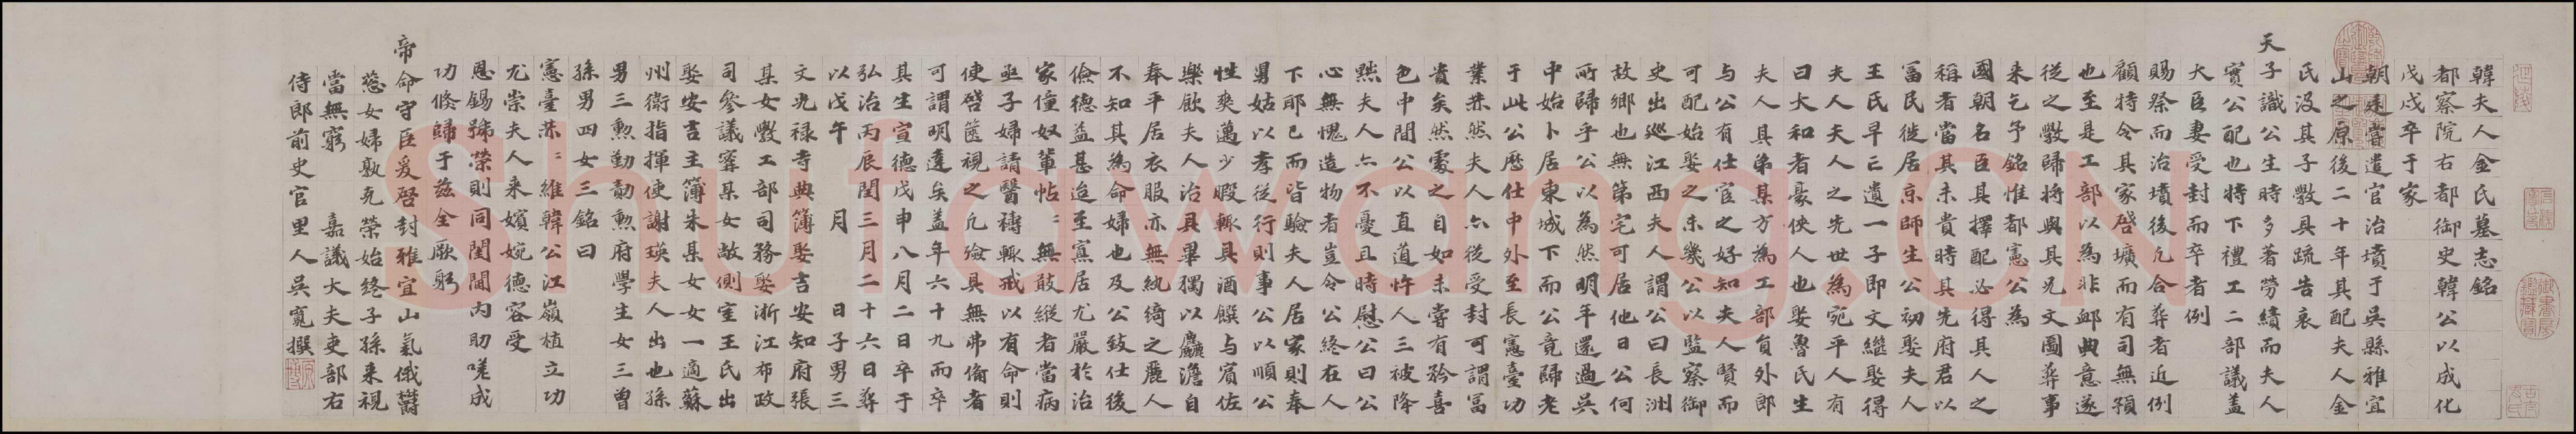 韓夫人金氏墓志銘
都察院右都御史韓公以成化
戊戌卒于家
朝廷嘗遣官治墳于吳縣雅宜
山之原後二十年其配夫人金
氏沒其子斅具疏告哀
天子識公生時多著勞績而夫人
實公配也特下禮工二部議蓋
大臣妻受封而卒者例
賜祭而治墳後凡合葬者近例
顧特令其家啓壙而有司無預
也至是工部以為非卹典意遂
從之斅歸將與其兄文圖葬事
來乞予銘惟都憲公為
國朝名臣其擇配必得其人之
稱者當其未貴時其先府君以
富民徙居京師生公初娶夫人
王氏早亡遺一子即文繼娶得
夫人夫人之先世為宛平人有
曰大和者豪俠人也娶魯氏生
夫人其弟某方為工部員外郎
與公有仕宦之好知夫人賢而
可配始娶之未幾公以監察御
史出巡江西夫人謂公曰長洲
故鄉也無第宅可居他日公何
所歸乎公以為然明年還過吳
中始卜居東城下而公竟歸老
于此公歷仕中外至長憲臺功
業赫然夫人亦從受封可謂冨
貴矣然處之自如未嘗有矜喜
色中間公以直道忤人三被降
黜夫人亦不憂且時慰公曰公
心無愧造物者豈令公終在人
下耶已而皆驗夫人居家則奉
舅姑以孝從行則事公以順公
性爽邁少暇輒具酒饌與賓佐
樂飲夫人治具畢獨以麤澹自
奉平居衣服亦無紈綺之麗人
不知其為命婦也及公致仕後
儉德益甚迨至寡居尤嚴於治
家僮奴輩帖〻無敢縱者當病
亟子婦請醫禱輒戒以有命則
使啓篋視之凡殮具無弗備者
可謂明達矣蓋年六十九而卒
其生宣德戊申八月二日卒于
弘治丙辰閏三月二十六日葬
以戊午　月　日子男三
文光祿寺典簿娶吉安知府張
某女斅工部司務娶浙江布政
司參議寗某女敞側室王氏出
娶安吉主簿朱某女女一適蘇
州衛指揮使謝瑛夫人出也孫
男三勲勤勣勲府學生女三曾
孫男四女三銘曰
憲臺赫〻維韓公江嶺植立功
尤崇夫人來嬪婉德容受
恩錫號榮則同閨閫內助嗟成
功倏歸于茲全厥躬
帝命守臣爰啓封雅宜山氣俄鬱
葱女婦孰克榮始終子孫來視
當無窮　嘉議大夫吏部右
侍郎前史官里人吳寬撰
Shufawang.CN